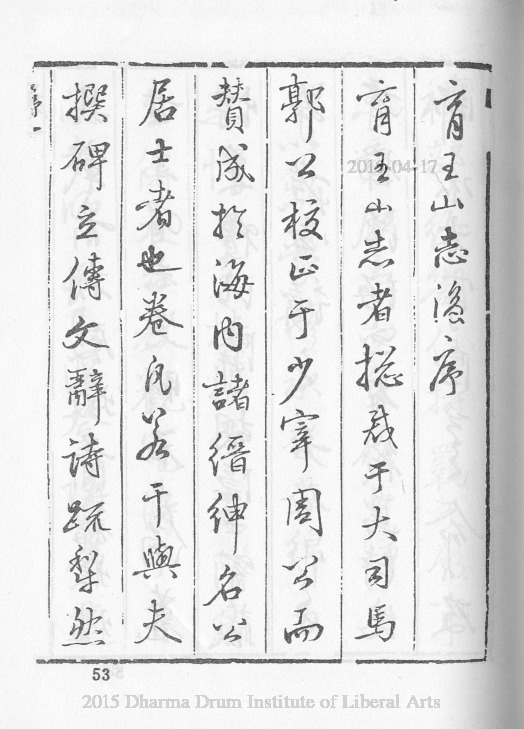 育王山志㵎序
育王山志者揔裁于大司馬
郭公校正于少宰周公而
賛成於海内諸縉紳名公
居士者也卷凡若干與夫
撰碑立傳文辭詩䟽犁然
序一
53
2015-04-17
2015 Dharma Drum Institute of Liberal Arts